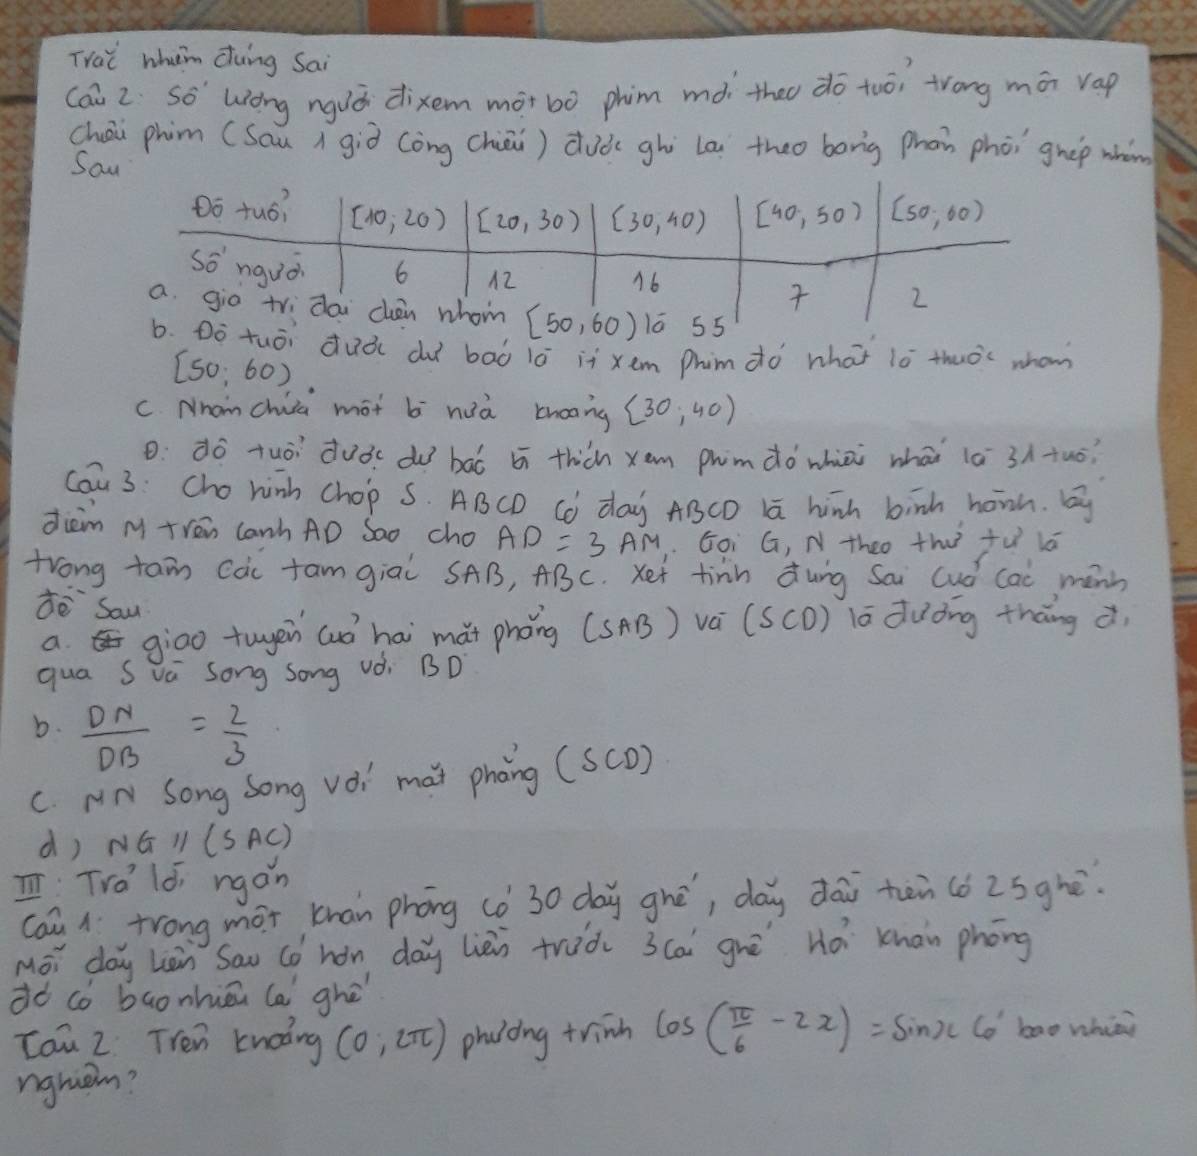 Trắc nhiệm đúng Sai
Câu 2: Số lượng người đi xem một bộ phim mới theo độ tuổi trong môn rạp
chiếu phim (sau 1 giờ công chiếu) được ghi lại theo bảng phân phối ghép nhóm
Sau
Độ tuổi | [10; 20) | [20, 30) | [30, 40) | [40, 50) | [50, 60)
Số người | 6 | 12 | 16 | 7 | 2
a. giá trị đại diện nhóm [50, 60) là 55
b. Độ tuổi được dự báo là ít xem phim đó nhất là thuộc nhóm
[50; 60)
c Nhóm chứa mốt là nửa khoảng [30; 40)
D: độ tuổi được dự báo là thích xem phim đó nhiều nhất là 31 tuổi
Câu 3: Cho hình chóp S. ABCD có đáy ABCD là hình bình hành. lấy
điểm M trên cạnh AD sao cho AD = 3 AM. Gọi G, N theo thứ tự là
trọng tâm các tam giác SAB, ABC. xét tính đúng sai của các mệnh
đề sau:
a. giao tuyến của hai mặt phẳng (SAB) và (SCD) là đường thẳng đi
qua S và song song với BD
b. DN/DB = 2/3
c. MN song song với mặt phẳng (SCD)
d) NG // (SAC)
III: Trả lời ngắn
Câu 1: trong một khán phòng có 30 dãy ghế, dãy đầu tiên có 25 ghế.
Mỗi dãy liền sau có hơn dãy liền trước 3 cái ghế Hỏi khán phòng
đó có bao nhiêu cái ghế
Câu 2: Trên khoảng (0; 2π) phương trình cos (π/6 - 2x) = sinx có bao nhiêu
nghiệm?